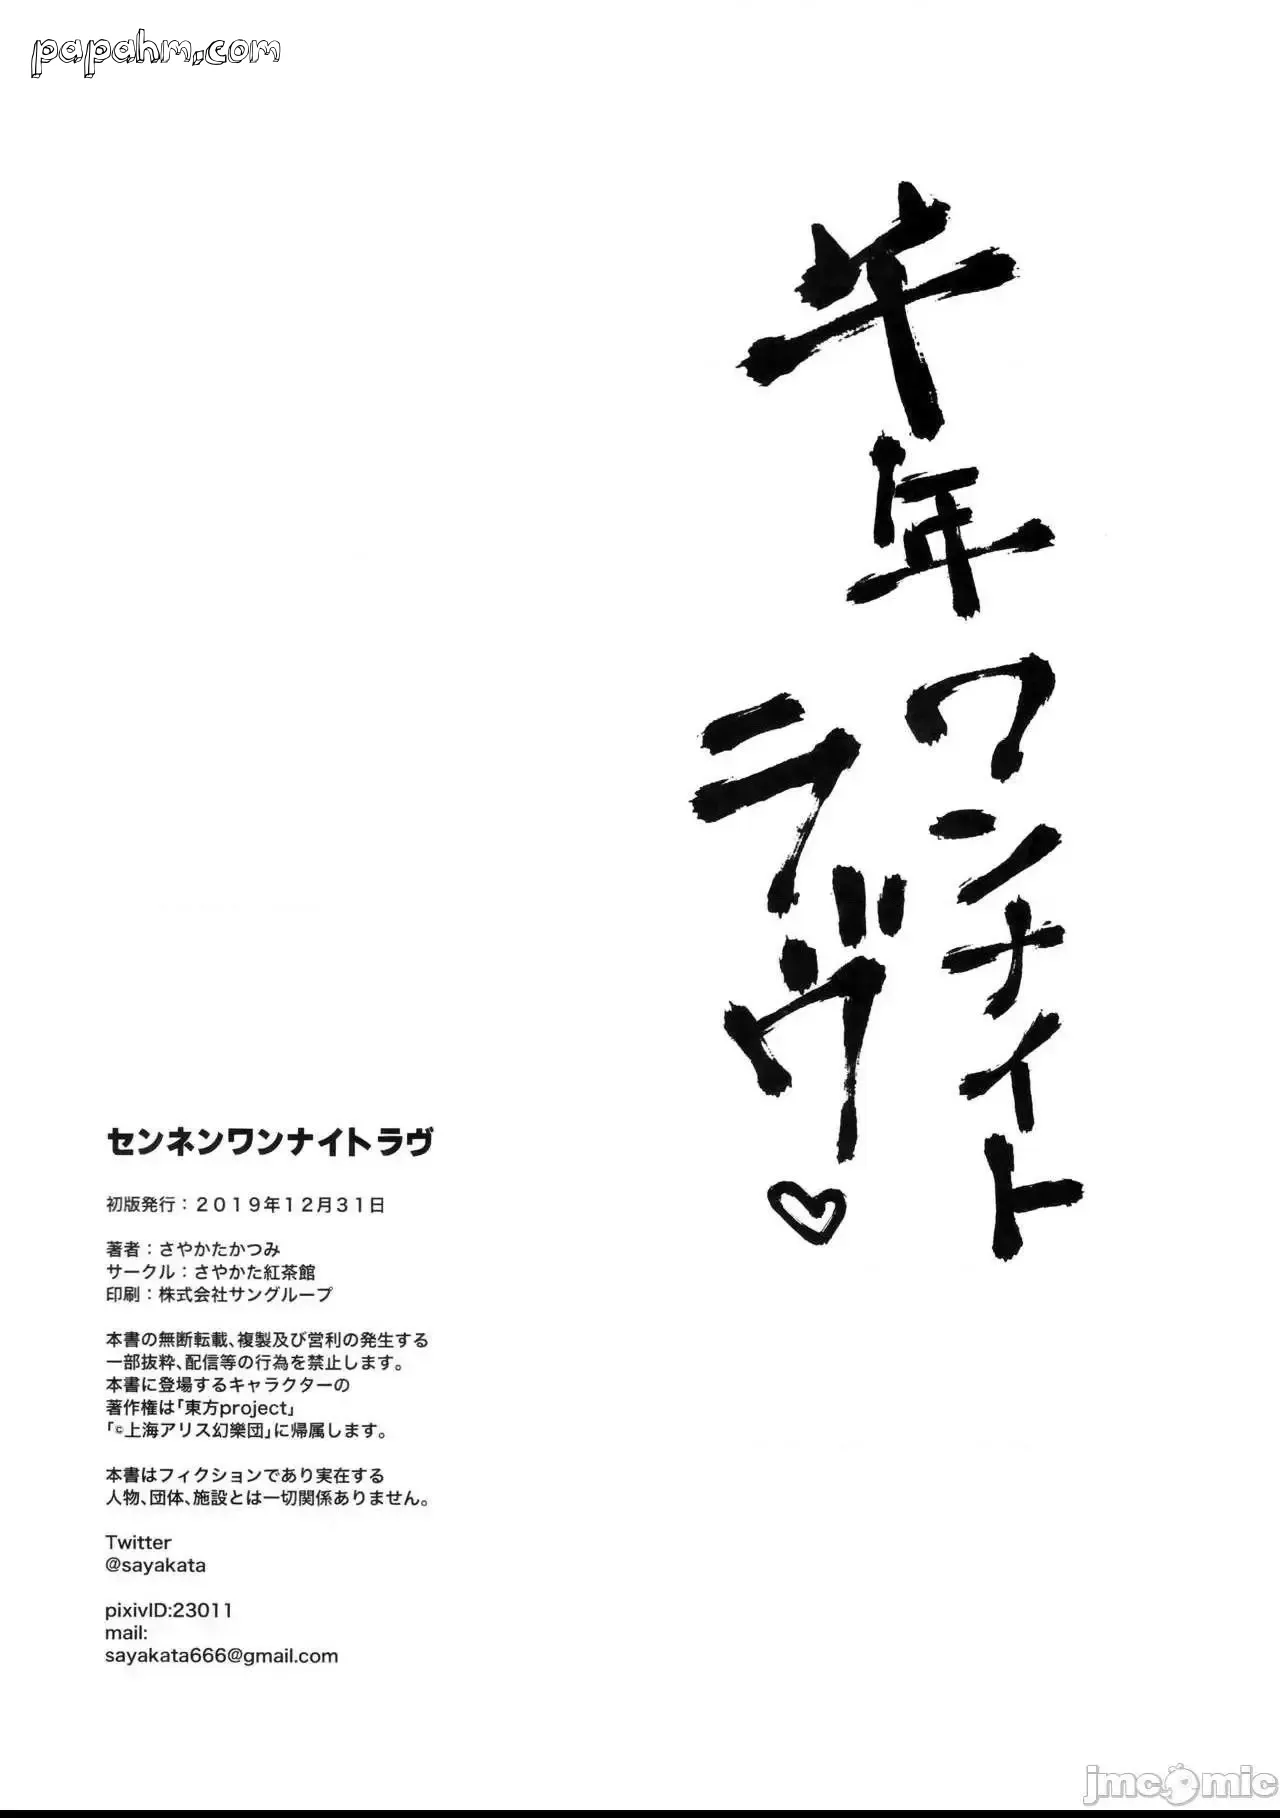 papahm.com
千年ワンナイト
ラヴ♡
センネンワンナイトラヴ
初版発行：２０１９年１２月３１日
著者：さやかたかつみ
サークル：さやかた紅茶館
印刷：株式会社サングループ
本書の無断転載、複製及び営利の発生する
一部抜粋、配信等の行為を禁止します。
本書に登場するキャラクターの
著作権は「東方project」
「©上海アリス幻樂団」に帰属します。
本書はフィクションであり実在する
人物、団体、施設とは一切関係ありません。
Twitter
@sayakata
pixivID:23011
mail:
sayakata666@gmail.com
jmcomic